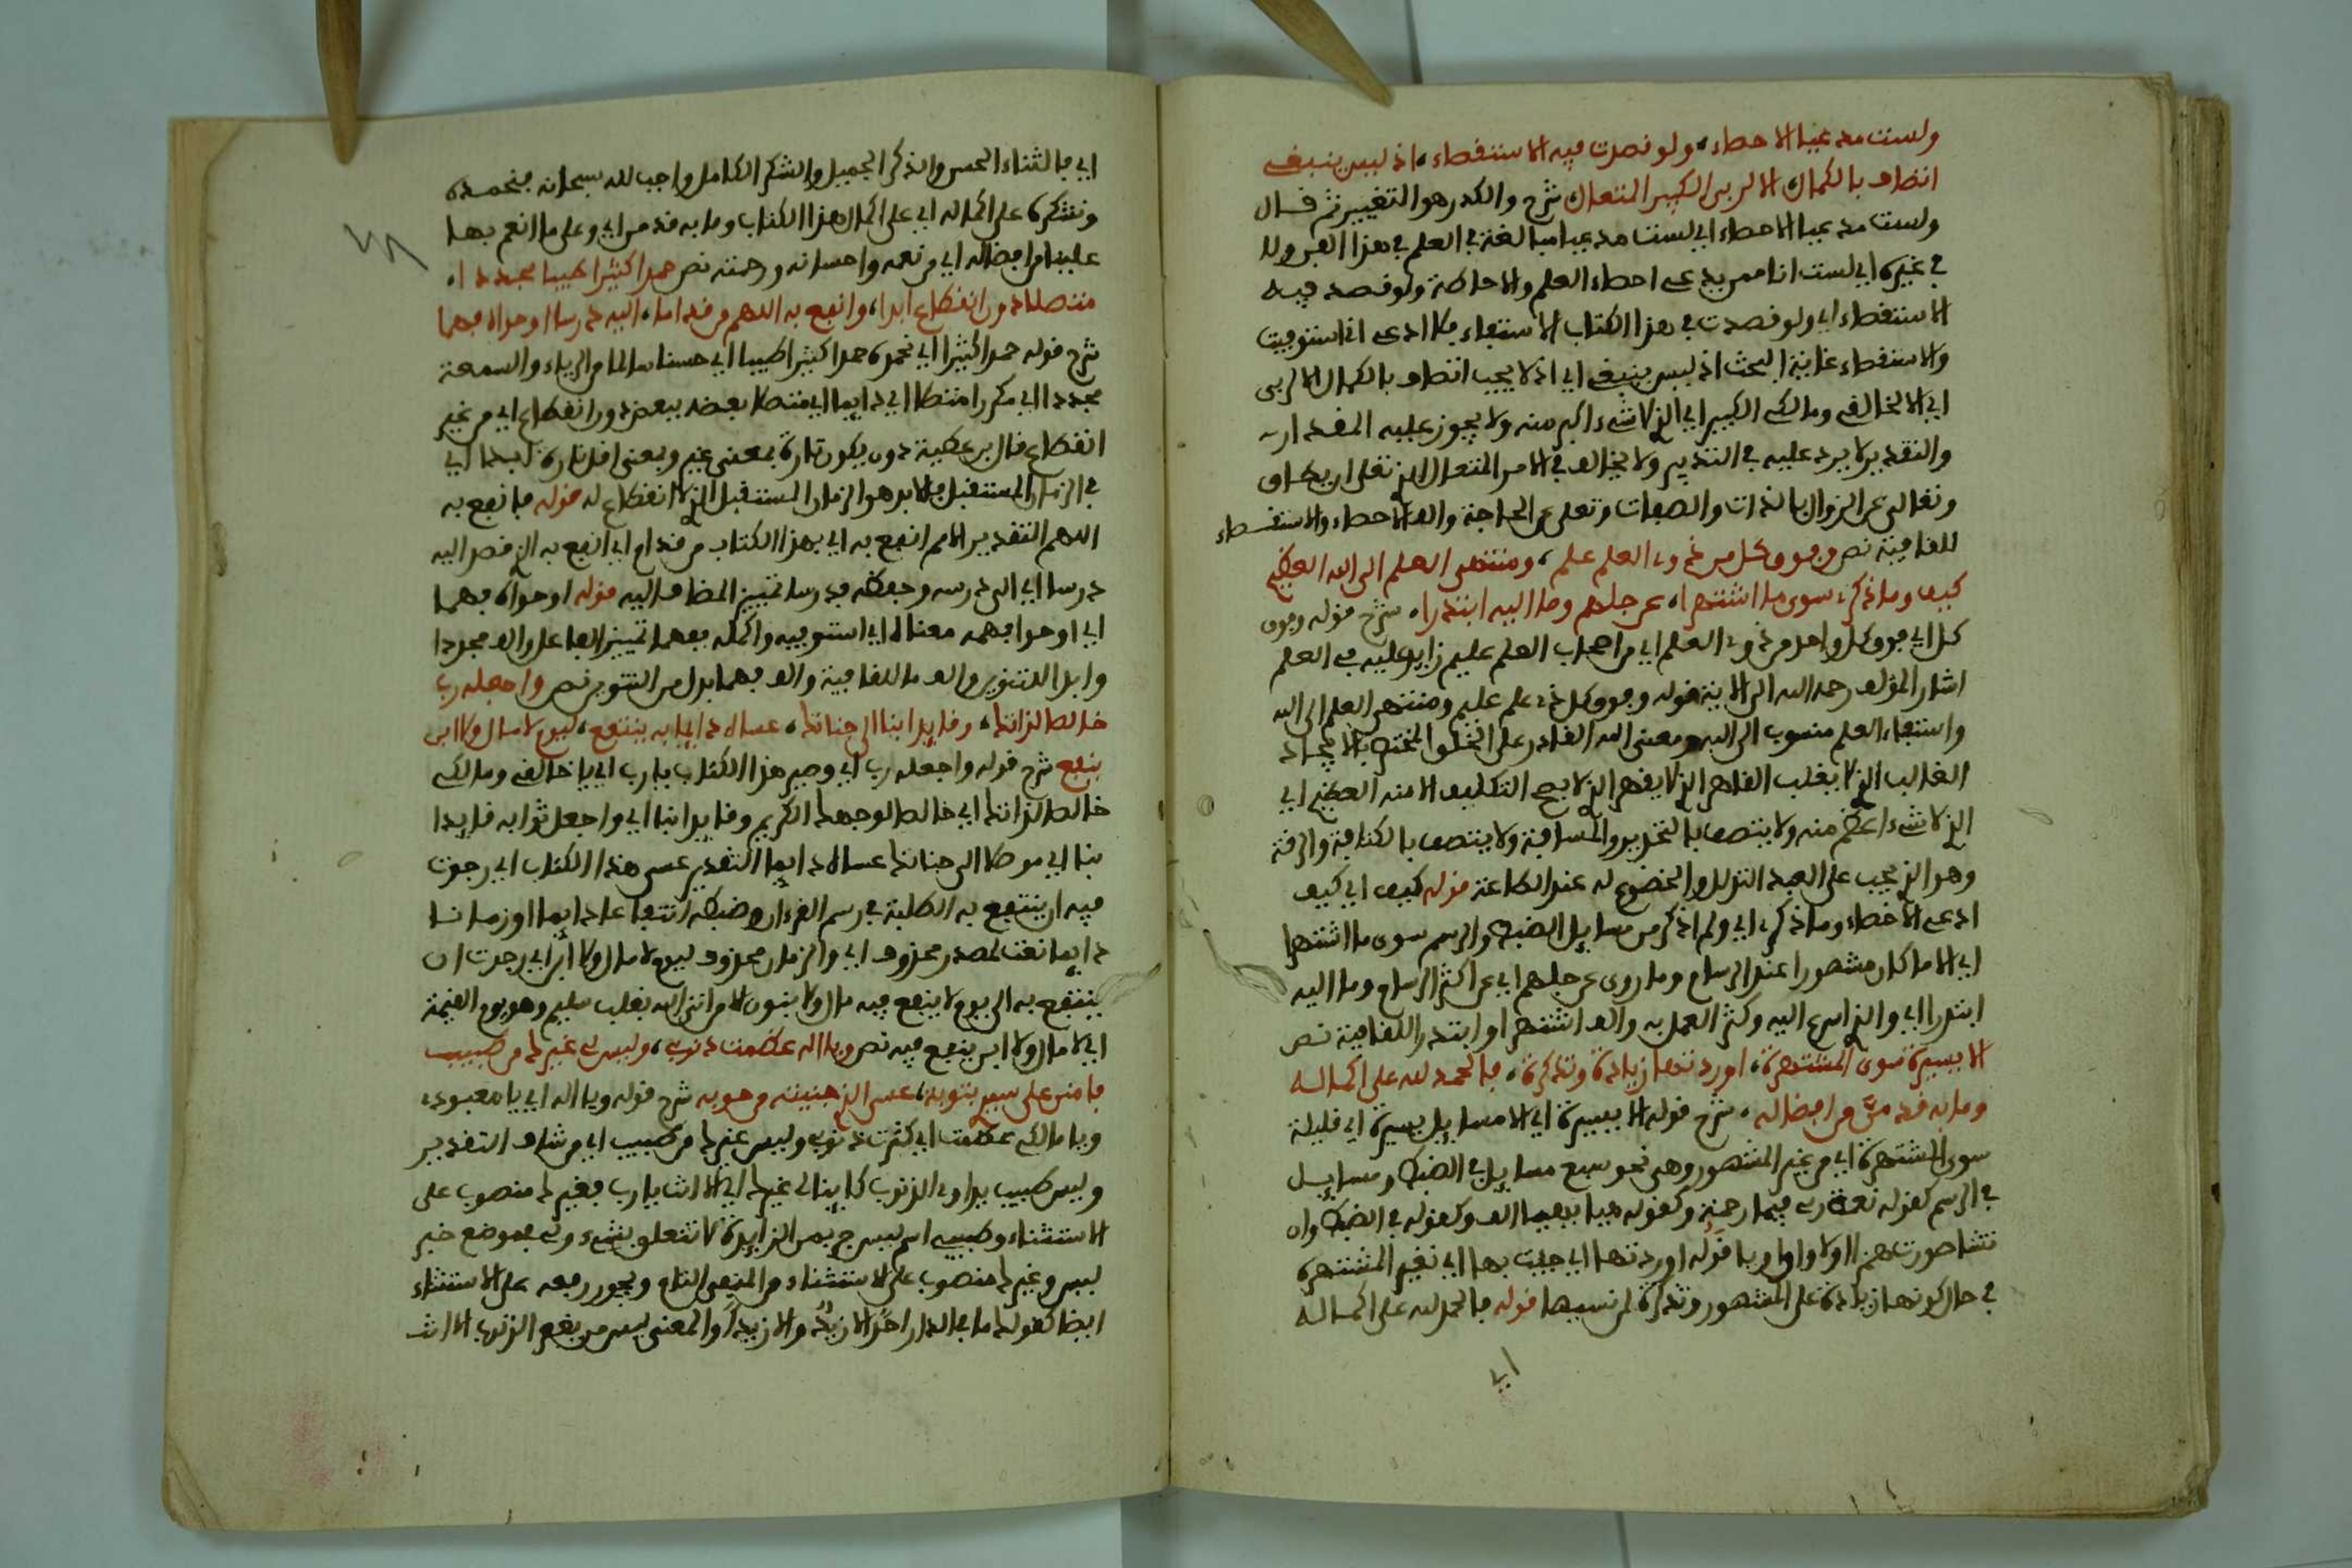 ولست مدعيا الاحصاء، ولو قصدت فيه الاستقصاء، اذ ليس ينبغي
اتصاف بالكمال الا لربي الكبير المتعال شرح والكدر هو التغيير ثم قال
ولست مدعيا الاحصاء اي لست مدعيا مبالغة في العلم في هذا الفن ولا
في غيره اي لست انا ممن يدعي احصاء العلم والاحاطة ولو قصد فيه
الاستقصاء اي ولو قصدت في هذا الكتاب الاستيفاء فلا ادعي اني استوفيت
والاستقصاء غاية البحث اذ ليس ينبغي اي اذ لا يجب اتصاف بالكمال الا لربي
اي الا لخالقي ومالكي الكبير اي الذي لا شيء اكبر منه ولا يجوز عليه المقدار
والتقدير لا يرد عليه في التدبير ولا يخالف في الامر المتعال الذي تعلى ان يكاف
وتعالى عن الزوال بالذات والصفات وتعلى عن الحاجة والف الاحصاء والاستقصاء
للقافية نص وفوق كل من ذوي العلم عليم، ومنتهى العلم الى الله العظيم
كيف وما ذكرت سوى ما اشتهرا، عن جلهم وما اليه ابتدرا، شرح قوله وفوق
كل اي فوق كل واحد من ذوي العلم اي من اصحاب العلم عليم زايد عليه في العلم
اشار المؤلف رحمه الله الى الاية قوله وفوق كل ذي علم عليم ومنتهى العلم الى الله
واستيفاء العلم منسوب الى الله ومعنى الله القادر على الخلق المختص بالايجاد
الغالب الذي لا يغلب القاهر الذي لا يقهر الذي لا يصح التكليف الا منه العظيم اي
الذي لا شيء اعظم منه ولا يتصف بالتحديد والمسافة ولا يتصف بالكثافة والرقة
وهو الذي يجب على العبد التذلل والخضوع له عند الطاعة قوله كيف اي كيف
ادعي الاحصاء وما ذكرت اي ولم اذكر من مسايل الضبط والرسم سوى ما اشتهرا
اي الا ما كان مشهورا عند الرسام وما روى عن جلهم اي عن اكثر الرسام وما اليه
ابتدرا اي والذي اسرع اليه وكثر العمل به والف اشتهرا وابتدرا للقافية نص
الا يسيرة سوى المشتهرة، اوردتها زيادة وتذكرة، فالحمد لله على اكماله
وما به قد من من افضاله، شرح قوله الا يسيرة اي الا مسايل يسيرة اي قليلة
سوى المشتهرة اي من غير المشهور وهي نحو سبع مسايل في الضبط ومسايل
في الرسم كقوله نعمة ربي فبما رحمة وكقوله فيا بعيد الف وكقوله في الضبط وان
تشا صورت همزا اولا واوا ويا قوله اوردتها اي جيت بها اي بغير المشتهرة
في حال كونها زيادة على المشهور وتذكرة لمن نسيها قوله فالحمد لله على اكماله
اي
اي فالثناء الحسن والذكر الجميل والشكر الكامل واجب لله سبحانه فنحمده
ونشكره على اكماله اي على اكمال هذا الكتاب وما به قد من اي وعلى ما انعم بها
علينا من افضاله اي من نعمه واحسانه ورحمته نص حمدا كثيرا طيبا مجددا،
متصلا دون انقطاع ابدا، وانفع به اللهم من قد اما، اليه درسا او حواه فهما
شرح قوله حمدا كثيرا اي نحمده حمدا كثيرا طيبا اي حسنا سالما من الرياء والسمعة
مجددا اي مكررا متصلا اي دايما اي متصلا بعضه ببعض دون انقطاع اي من غير
انقطاع قال ابن عطية دون يكون تارة بمعنى غير وبمعنى اقل تارة ابدا اي
في الزمان المستقبل فالابد هو الزمان المستقبل الذي لا انقطاع له قوله فانفع به
اللهم التقدير اللهم انفع به اي بهذا الكتاب من قد ام اي انفع به الذي قصد اليه
درسا اي الى درسه وحفظه فدرسا تمييز المضاف اليه قوله او حواه فهما
اي او حوا فهمه معناه اي استوفيه واكمله ففهما تمييز الفاعل والف مجددا
وابدا للتنوين والف اما للقافية والف فهما بدل من التنوين نص واجعله رب
خالصا لذاتكا، وقايدا بنا الى جناتكا، عساه دايما به ينتفع، ليوم لا مال ولا ابن
ينفع شرح قوله واجعله رب اي وصير هذا الكتاب يا رب اي يا خالقي ومالكي
خالصا لذاتكا اي خالصا لوجهك الكريم وقايدا بنا اي واجعل ثوابه قايدا
بنا اي موصلا الى جناتكا عساه دايما التقدير عسى هذا الكتاب اي رجوت
فيه ان ينتفع به الطلبة في رسم القرءان وضبطه انتفاعا دايما او زمانا
دايما نعت لمصدر محذوف اي والزمان محذوف ليوم لا مال ولا ابن اي رجوت ان
ينتفع به الى يوم لا ينفع فيه مال ولا بنون الا من اتى الله بقلب سليم وهو يوم القيمة
اي لا مال ولا ابن ينفع فيه نص ويا اله عظمت ذنوبي، وليس لي غيرك من طبيب
فامنن علي سيدي بتوبة، عسى الذي جنيته من حوبة شرح قوله ويا اله اي يا معبودي
ويا مالكي عظمت اي كثرت ذنوبي وليس غيرك من طبيب اي من شاف التقدير
وليس طبيب يداوي الذنوب كاينا لي غيرك اي الا انت يا رب فغيرك منصوب على
الاستثناء وطبيب اسم ليس جر بمن الزايدة لا تتعلق بشيء ولي في موضع خبر
ليس وغيرك منصوب على الاستثناء من المنفي التام ويجوز رفعه على الاستثناء
ايضا كقولك ما في الدار احد الا زيد والا زيدا والمعنى ليس من يغفر الذنوب الا انت